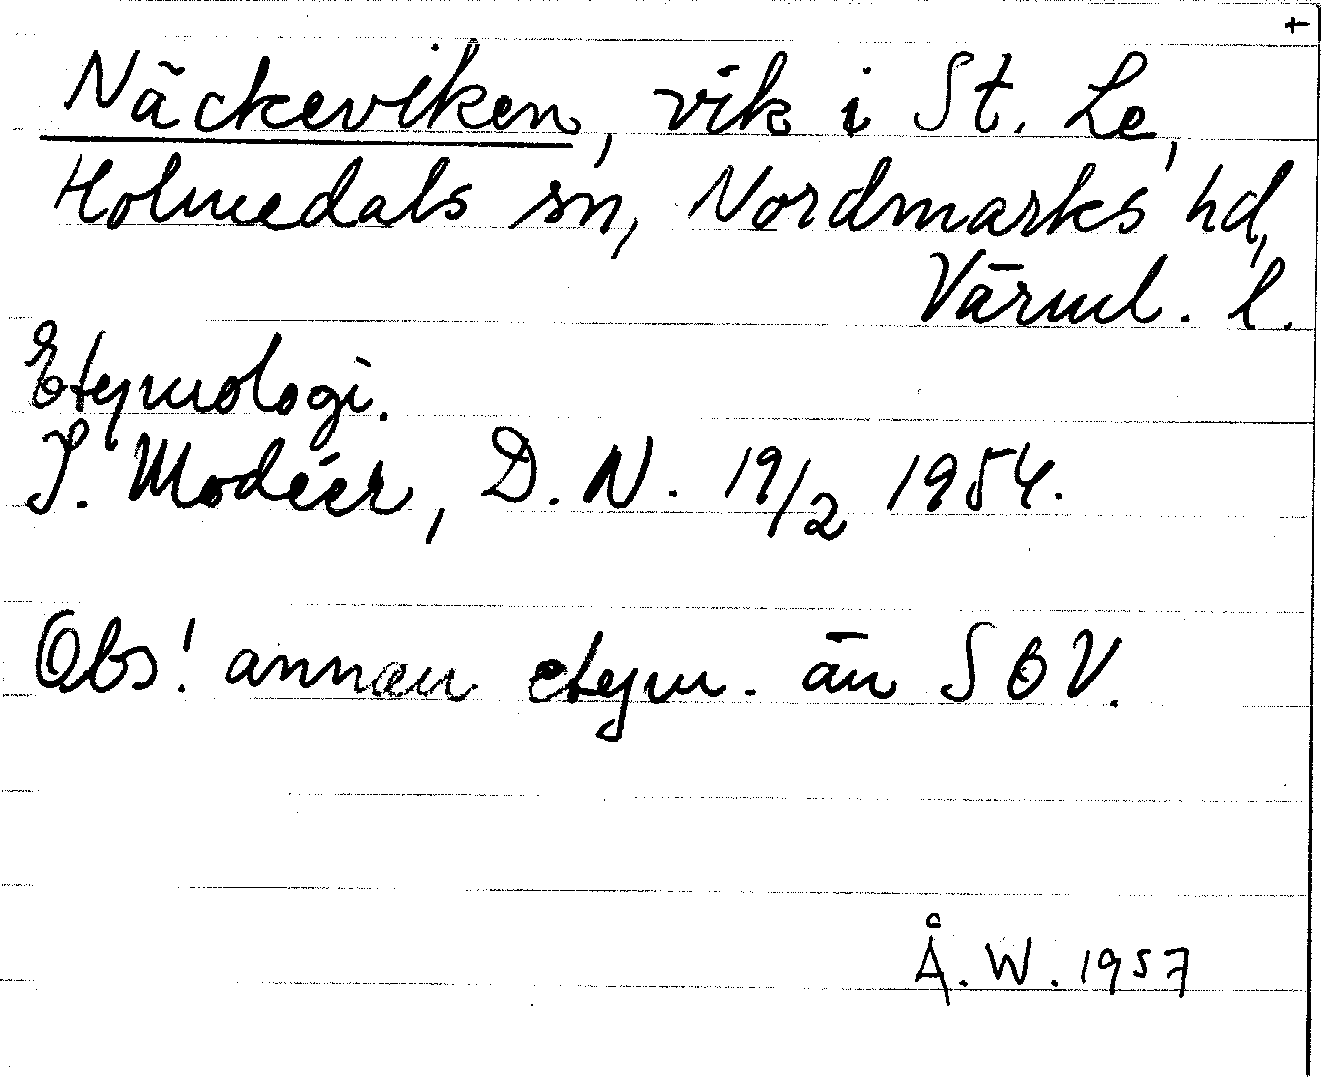 †
Näckeviken, vik i St. Le,
Holmedals sn, Nordmarks hd,
Värml. l.
Etymologi.
I. Modéer, D. N. 19/2 1954.
Obs! annan etym. än SOV.
Å. W. 1957